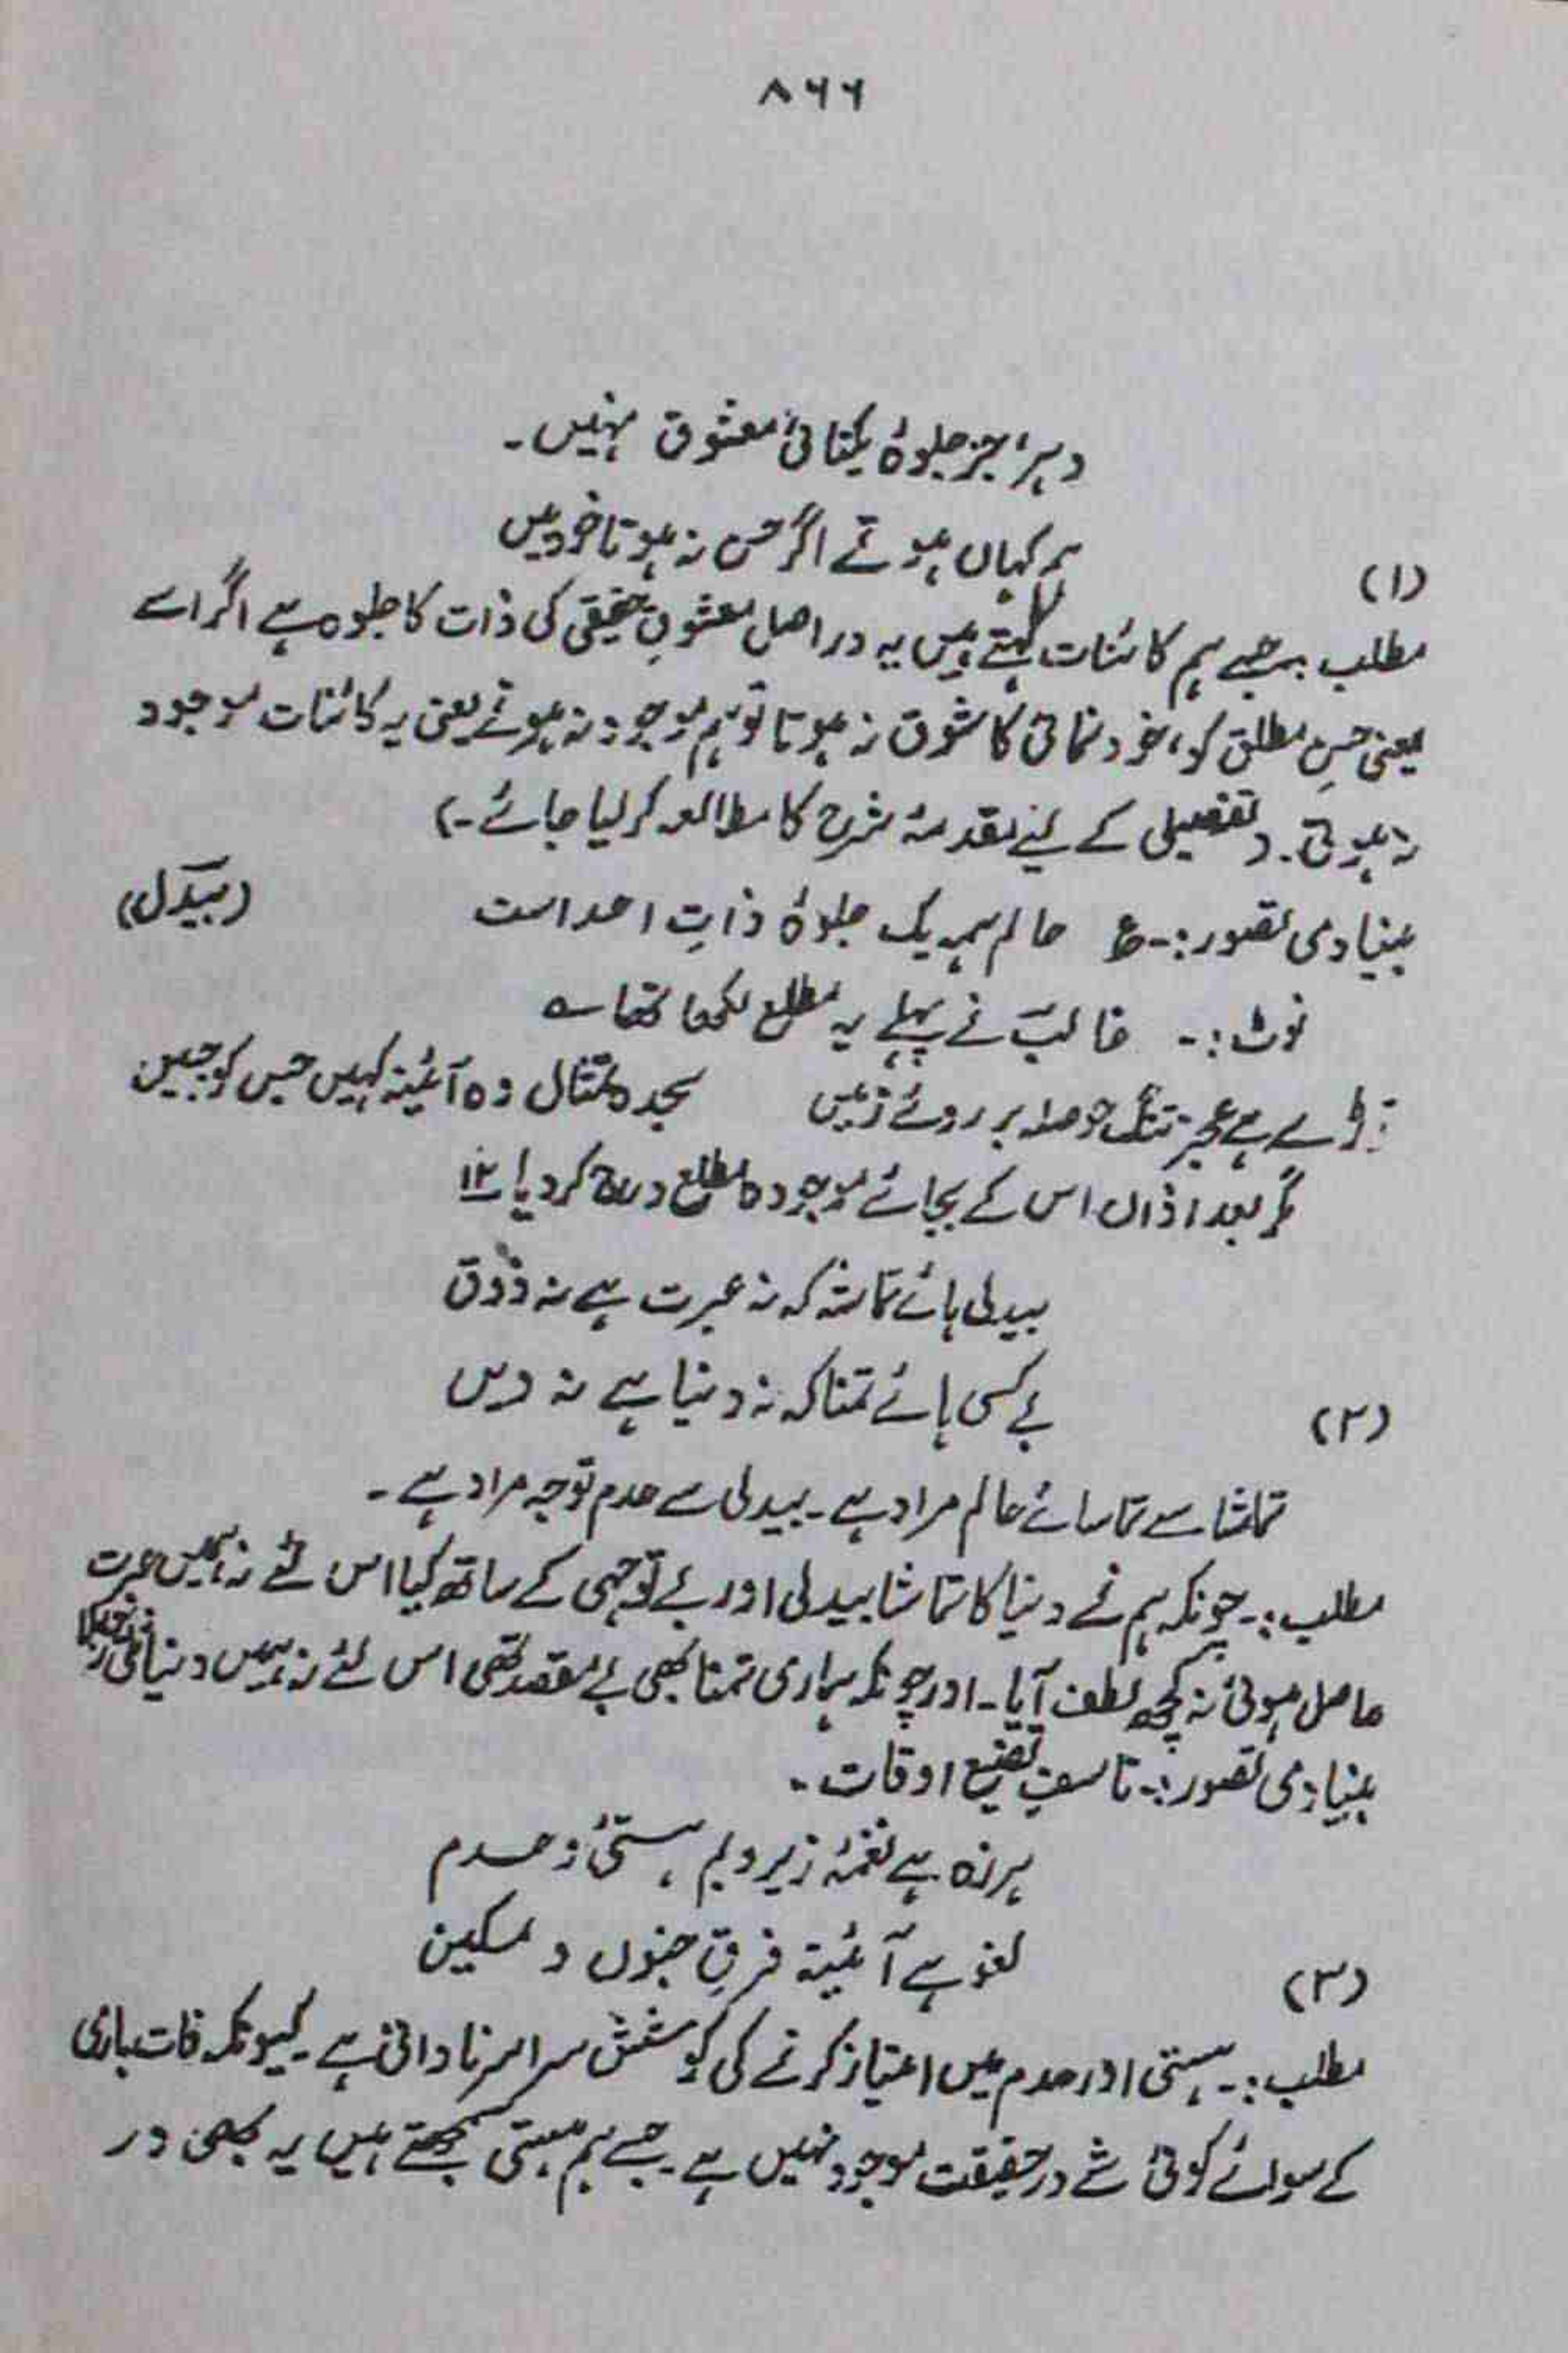 ۸۶۶
دہر، جز جلوۂ یکتائیِ معشوق نہیں۔
ہم کہاں ہوتے اگر حسن نہ ہوتا خود بیں
(۱)
مطلب :۔ جسے ہم کائنات کہتے ہیں یہ در اصل معشوقِ حقیقی کی ذات کا جلوہ ہے اگر اسے
یعنی حسنِ مطلق کو، خود نمائی کا شوق نہ ہوتا تو ہم موجود نہ ہوتے یعنی یہ کائنات موجود
نہ ہوتی۔ (تفصیلی کے لیے مقدمۂ شرح کا مطالعہ کر لیا جائے۔)
بنیادی تصور :۔ ع عالم ہمہ یک جلوۂ ذاتِ احد است (بیدل)
نوٹ :۔ غالبؔ نے پہلے یہ مطلع لکھا تھا ؎
توڑے ہے عجزِ تنک حوصلہ بر روئے زمیں سجدہ تمثال وہ آئینہ کہیں جس کو جبیں
مگر بعد ازاں اس کے بجائے موجودہ مطلع درج کر دیا ۱۲
بیدلی ہائے تماشہ کہ نہ عبرت ہے نہ ذوق
بے کسی ہائے تمنا کہ نہ دنیا ہے نہ دیں
(۲)
تماشا سے تماسائے عالم مراد ہے۔ بیدلی سے عدم توجہ مراد ہے۔
مطلب :۔ چونکہ ہم نے دنیا کا تماشا بیدلی اور بے توجہی کے ساتھ کیا اس لئے نہ ہمیں عبرت
حاصل ہوئی نہ کچھ لطف آیا۔ اور چونکہ ہماری تمنا بھی بے مقصد تھی اس لئے نہ ہمیں دنیا ملی نہ
بنیادی تصور :۔ تاسفِ تضیع اوقات۔
ہرزہ ہے نغمۂ زیر و بم ہستیٔ و عدم
لغو ہے آئینۂ فرقِ جنوں و تمکین
(۳)
مطلب :۔ ہستی اور عدم میں امتیاز کرنے کی کوشش سراسر نادانی ہے۔ کیونکہ ذات باری
کے سوائے کوئی شے در حقیقت موجود نہیں ہے۔ جسے ہم ہستی سمجھتے ہیں یہ بھی در